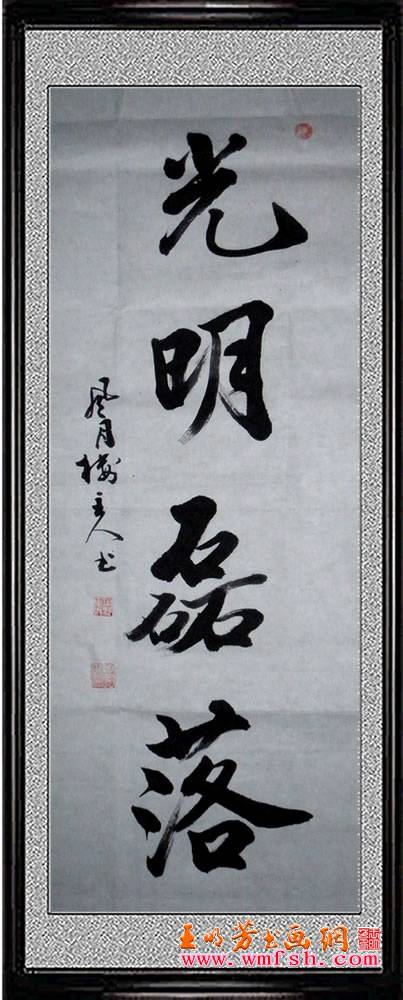 光明磊落
風月樓主人书
王明芳书画網
www.wmfsh.com